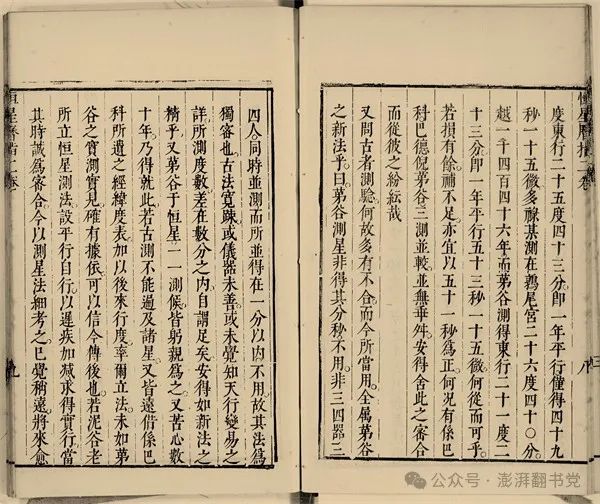 恒星曆指二卷
度東行二十五度四十三分即一年平行僅得四十九
秒一十五微多祿某測在鶉尾宮二十六度四十〇分
越一千四百四十六年而第谷測得東行二十一度二
十三分即一年平行五十三秒一十五微何從而可乎
若損有餘補不足亦宜以五十一秒為正何況有依巴
科巴德倪第谷三測並較並無垂舛安得舍此之審合
而從彼之紛紜哉
又問古者測驗何故多有不合而今所當用全屬第谷
之新法乎曰第谷測星非得其分秒不用非三四器三
八
四人同時並測而所並得在一分以内不用故其法為
獨審也古法寛踈或儀器未善或未覺知天行變易之
詳所測度數差在數分之内自謂足矣安得如新法之
精乎又第谷于恒星一一測候皆躬親為之又苦心數
十年乃得就此若古測不能過及諸星又皆遠借依巴
科所遺之經緯度表加以後來行度率爾立法未如第
谷之實測實見確有據依可以信今傳後也若泥谷老
所立恒星測法設平行自行以遲疾加減求得實行當
其時誠為審合今以測星法細考之已覺稍遠將來愈
恒星曆指二卷
九
公众号·澎湃翻书党